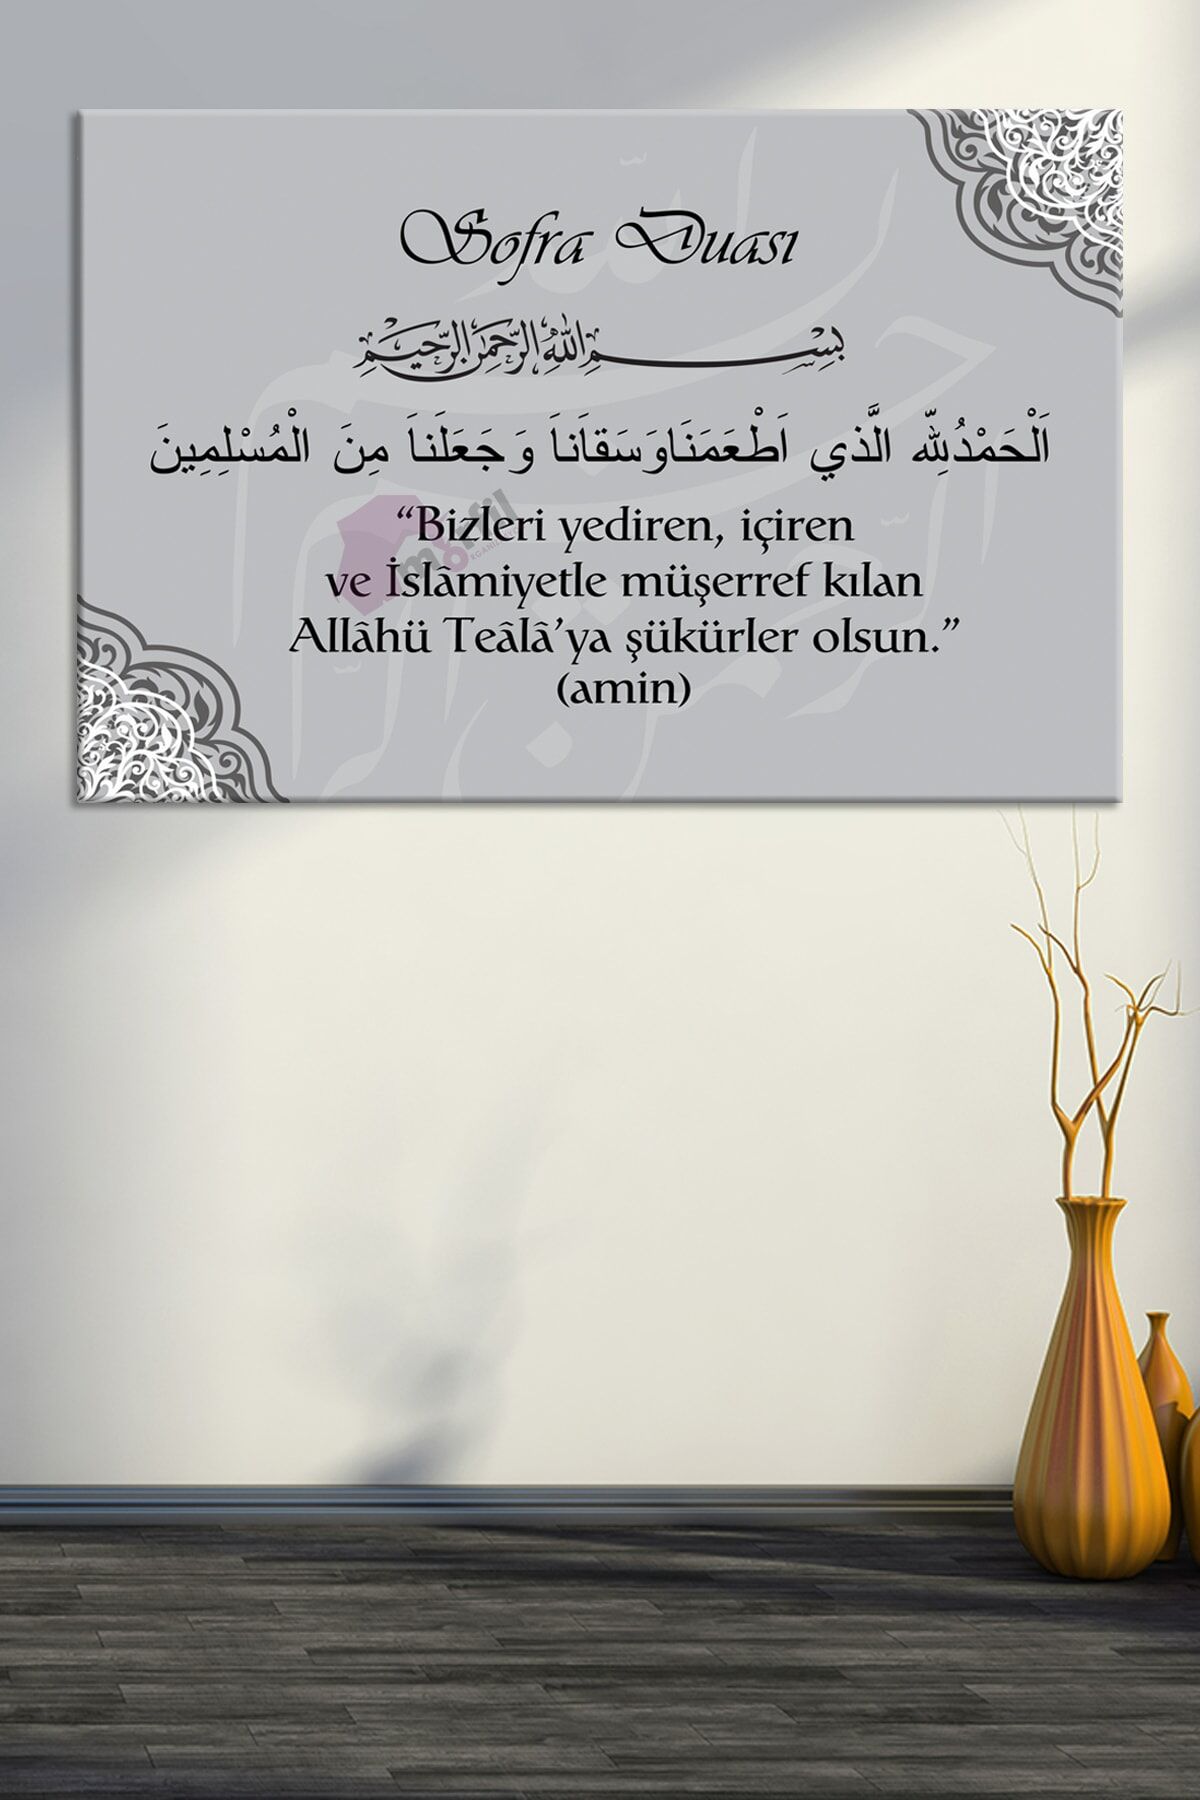 Sofra Duası
بِسْمِ اللهِ الرَّحْمٰنِ الرَّحِيمِ
اَلْحَمْدُلِلّٰه الَّذي اَطْعَمَنَاوَسَقاَناَ وَجَعَلَناَ مِنَ الْمُسْلِمِينَ
“Bizleri yediren, içiren
ve İslâmiyetle müşerref kılan
Allâhü Teâlâ’ya şükürler olsun.”
(amin)